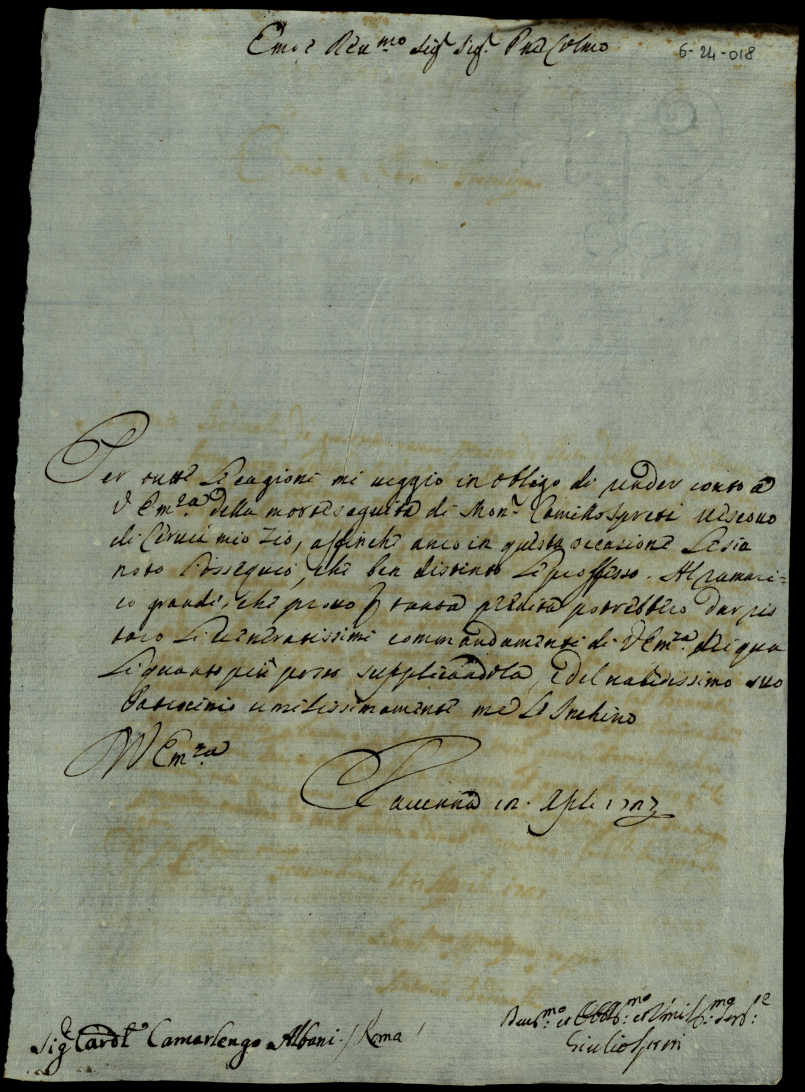 Em.o e Reu.mo Sig.r Sig.r Pne Colmo
6-24-018
Per tutte le cagioni mi ueggio in obligo di render conto a
V Em.za della morte seguita di Mon.r Camillo Spreti Uescouo
di Ceruia mio Zio, affinche anco in questa occasione le sia
noto l'ossequio, che ben distinto le professo. Al ramari=
co grande, che prouo p tanta perdita potrebbero dar ris
toro li ueneratissimi commandamenti di V Em.za, dei qua
li quanto più posso supplicandola, e del ualidissimo suo
Patrocinio umilissimamente me le Inchino
Di V Em.za
Rauenna 12. Aple 1727
Deuot.mo et Obblig.mo et Umiliss.mo Seru.re
Giulio Spreti
Sig.r Card.l Camarlengo Albani / Roma